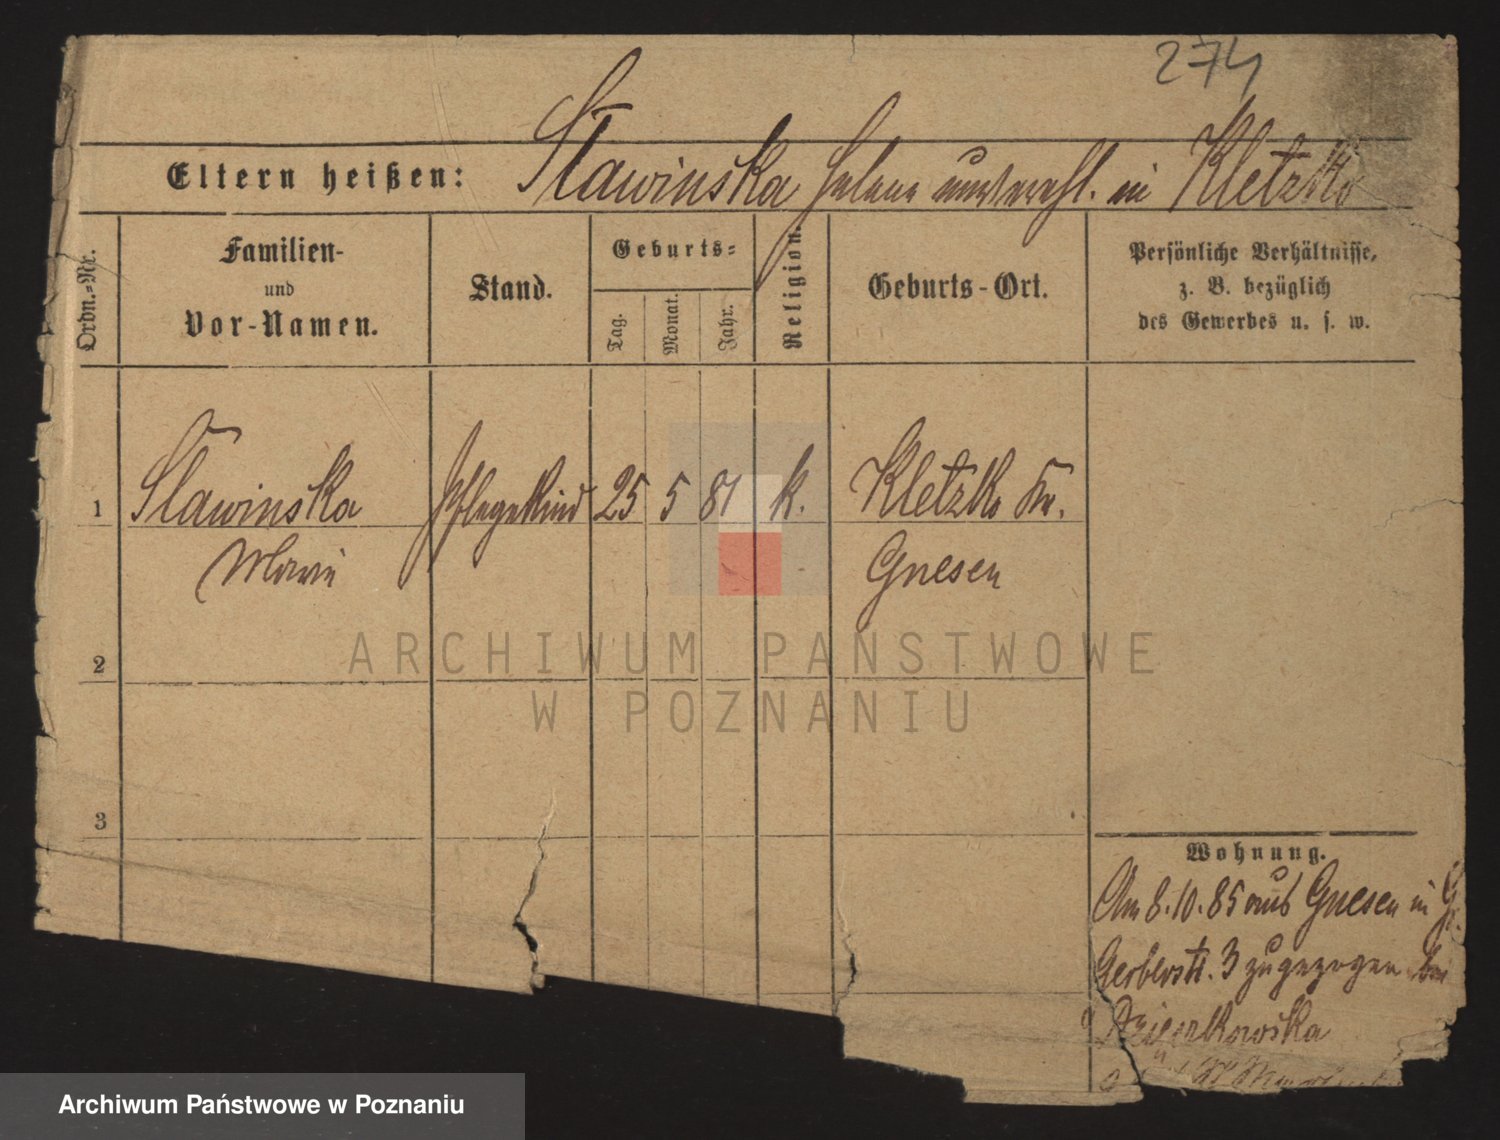 274
Eltern heißen: Slawinska Helene unverehl. in Kletzko
Ordn.=Nr.
Familien-
und
Vor-Namen.
Stand.
Geburts=
Tag.
Monat.
Jahr.
Religion.
Geburts-Ort.
Persönliche Verhältnisse,
z. B. bezüglich
des Gewerbes u. s. w.
1 Slawinska Pflegekind 25 5 81 k. Kletzko Kr.
Marie Gnesen
2
3
Wohnung.
Am 8.10.85 aus Gnesen in Gr.
Gerberstr. 3 zugezogen bei
ARCHIWUM PAŃSTWOWE
W POZNANIU
Archiwum Państwowe w Poznaniu